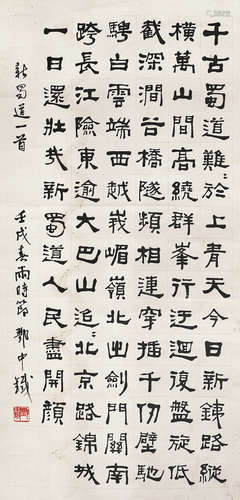 千古蜀道難〻於上青天今日新銕路縱
橫萬山間高繞群峯行迂迴復盤旋低
截深澗谷橋隧頻相連穿插千仞壁馳
騁白雲端西越峩嵋嶺北出劍門關南
跨長江險東逾大巴山追〻北京路錦城
一日還壯哉新蜀道人民盡開顏
新蜀道一首
壬戌春雨時節酆中鐵